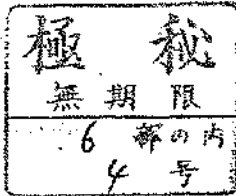 極秘
無期限
6部の内
4号